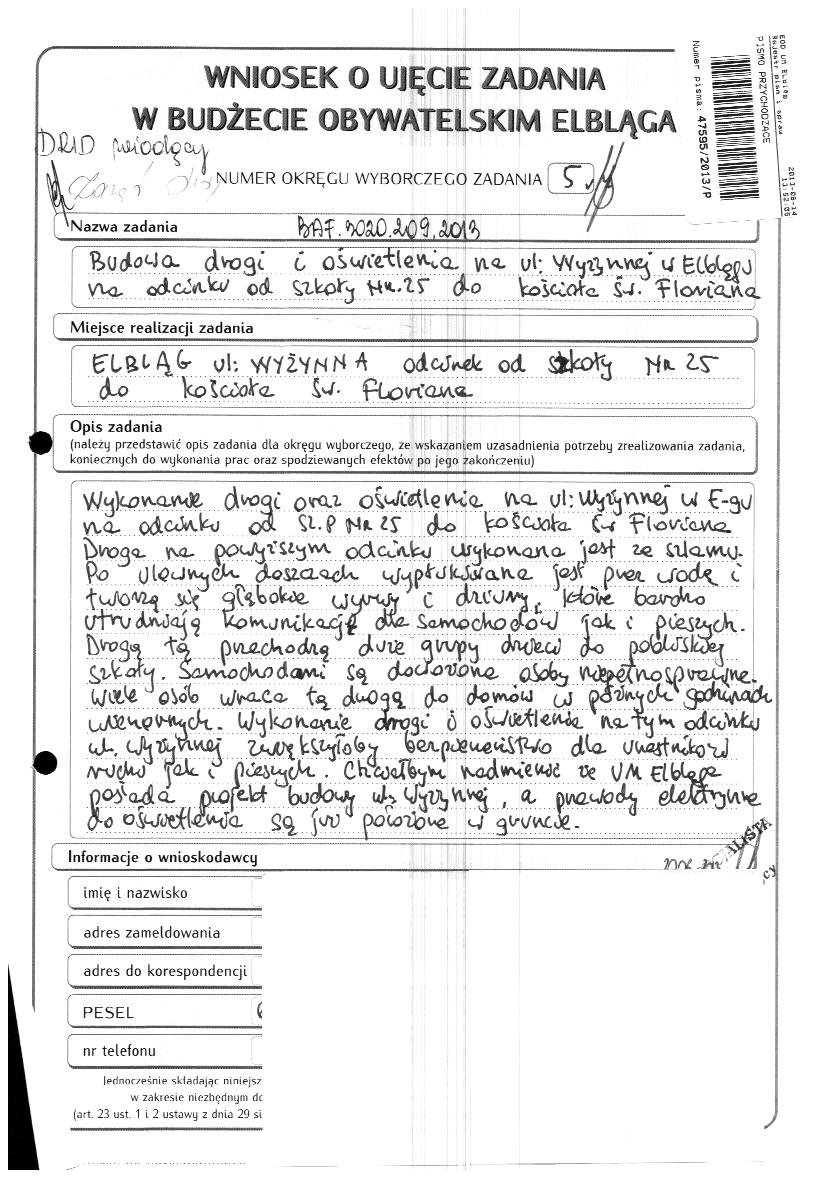 WNIOSEK O UJĘCIE ZADANIA
W BUDŻECIE OBYWATELSKIM ELBLĄGA
EOD UM Elbląg
Rejestr pism i spraw
PISMO PRZYCHODZĄCE
Numer pisma: 47595/2013/P
2013-06-14
DRID wiodący
NUMER OKRĘGU WYBORCZEGO ZADANIA 5
Nazwa zadania BAF.3020.209.2013
Budowa drogi i oświetlenia na ul: Wyżynnej w Elblągu
na odcinku od szkoły Nr.25 do kościoła Św. Floriana
Miejsce realizacji zadania
ELBLĄG ul: WYŻYNNA odcinek od szkoły Nr 25
do kościoła Św. Floriana
Opis zadania
(należy przedstawić opis zadania dla okręgu wyborczego, ze wskazaniem uzasadnienia potrzeby zrealizowania zadania,
koniecznych do wykonania prac oraz spodziewanych efektów po jego zakończeniu)
Wykonanie drogi oraz oświetlenia na ul: Wyżynnej w E-gu
na odcinku od Sz.P Nr 25 do kościoła Św Floriana
Droga na powyższym odcinku wykonana jest ze szlamu.
Po ulewnych deszczach wypłukiwana jest przez wodę i
tworzą się głębokie wyrwy i dziury, które bardzo
utrudniają komunikację dla samochodów jak i pieszych.
Drogą tą przechodzą duże grupy dzieci do pobliskiej
szkoły. Samochodami są dowożone osoby niepełnosprawne.
Wiele osób wraca tą drogą do domów w późnych godzinach
wieczornych. Wykonanie drogi i oświetlenia na tym odcinku
ul. Wyżynnej zwiększyłoby bezpieczeństwo dla uczestników
ruchu jak i pieszych. Chciałbym nadmienić że UM Elbląga
posiada projekt budowy ul. Wyżynnej, a przewody elektryczne
do oświetlenia są już położone w gruncie.
Informacje o wnioskodawcy
imię i nazwisko
adres zameldowania
adres do korespondencji
PESEL
nr telefonu
Jednocześnie składając niniejsz
w zakresie niezbędnym do
(art. 23 ust. 1 i 2 ustawy z dnia 29 si